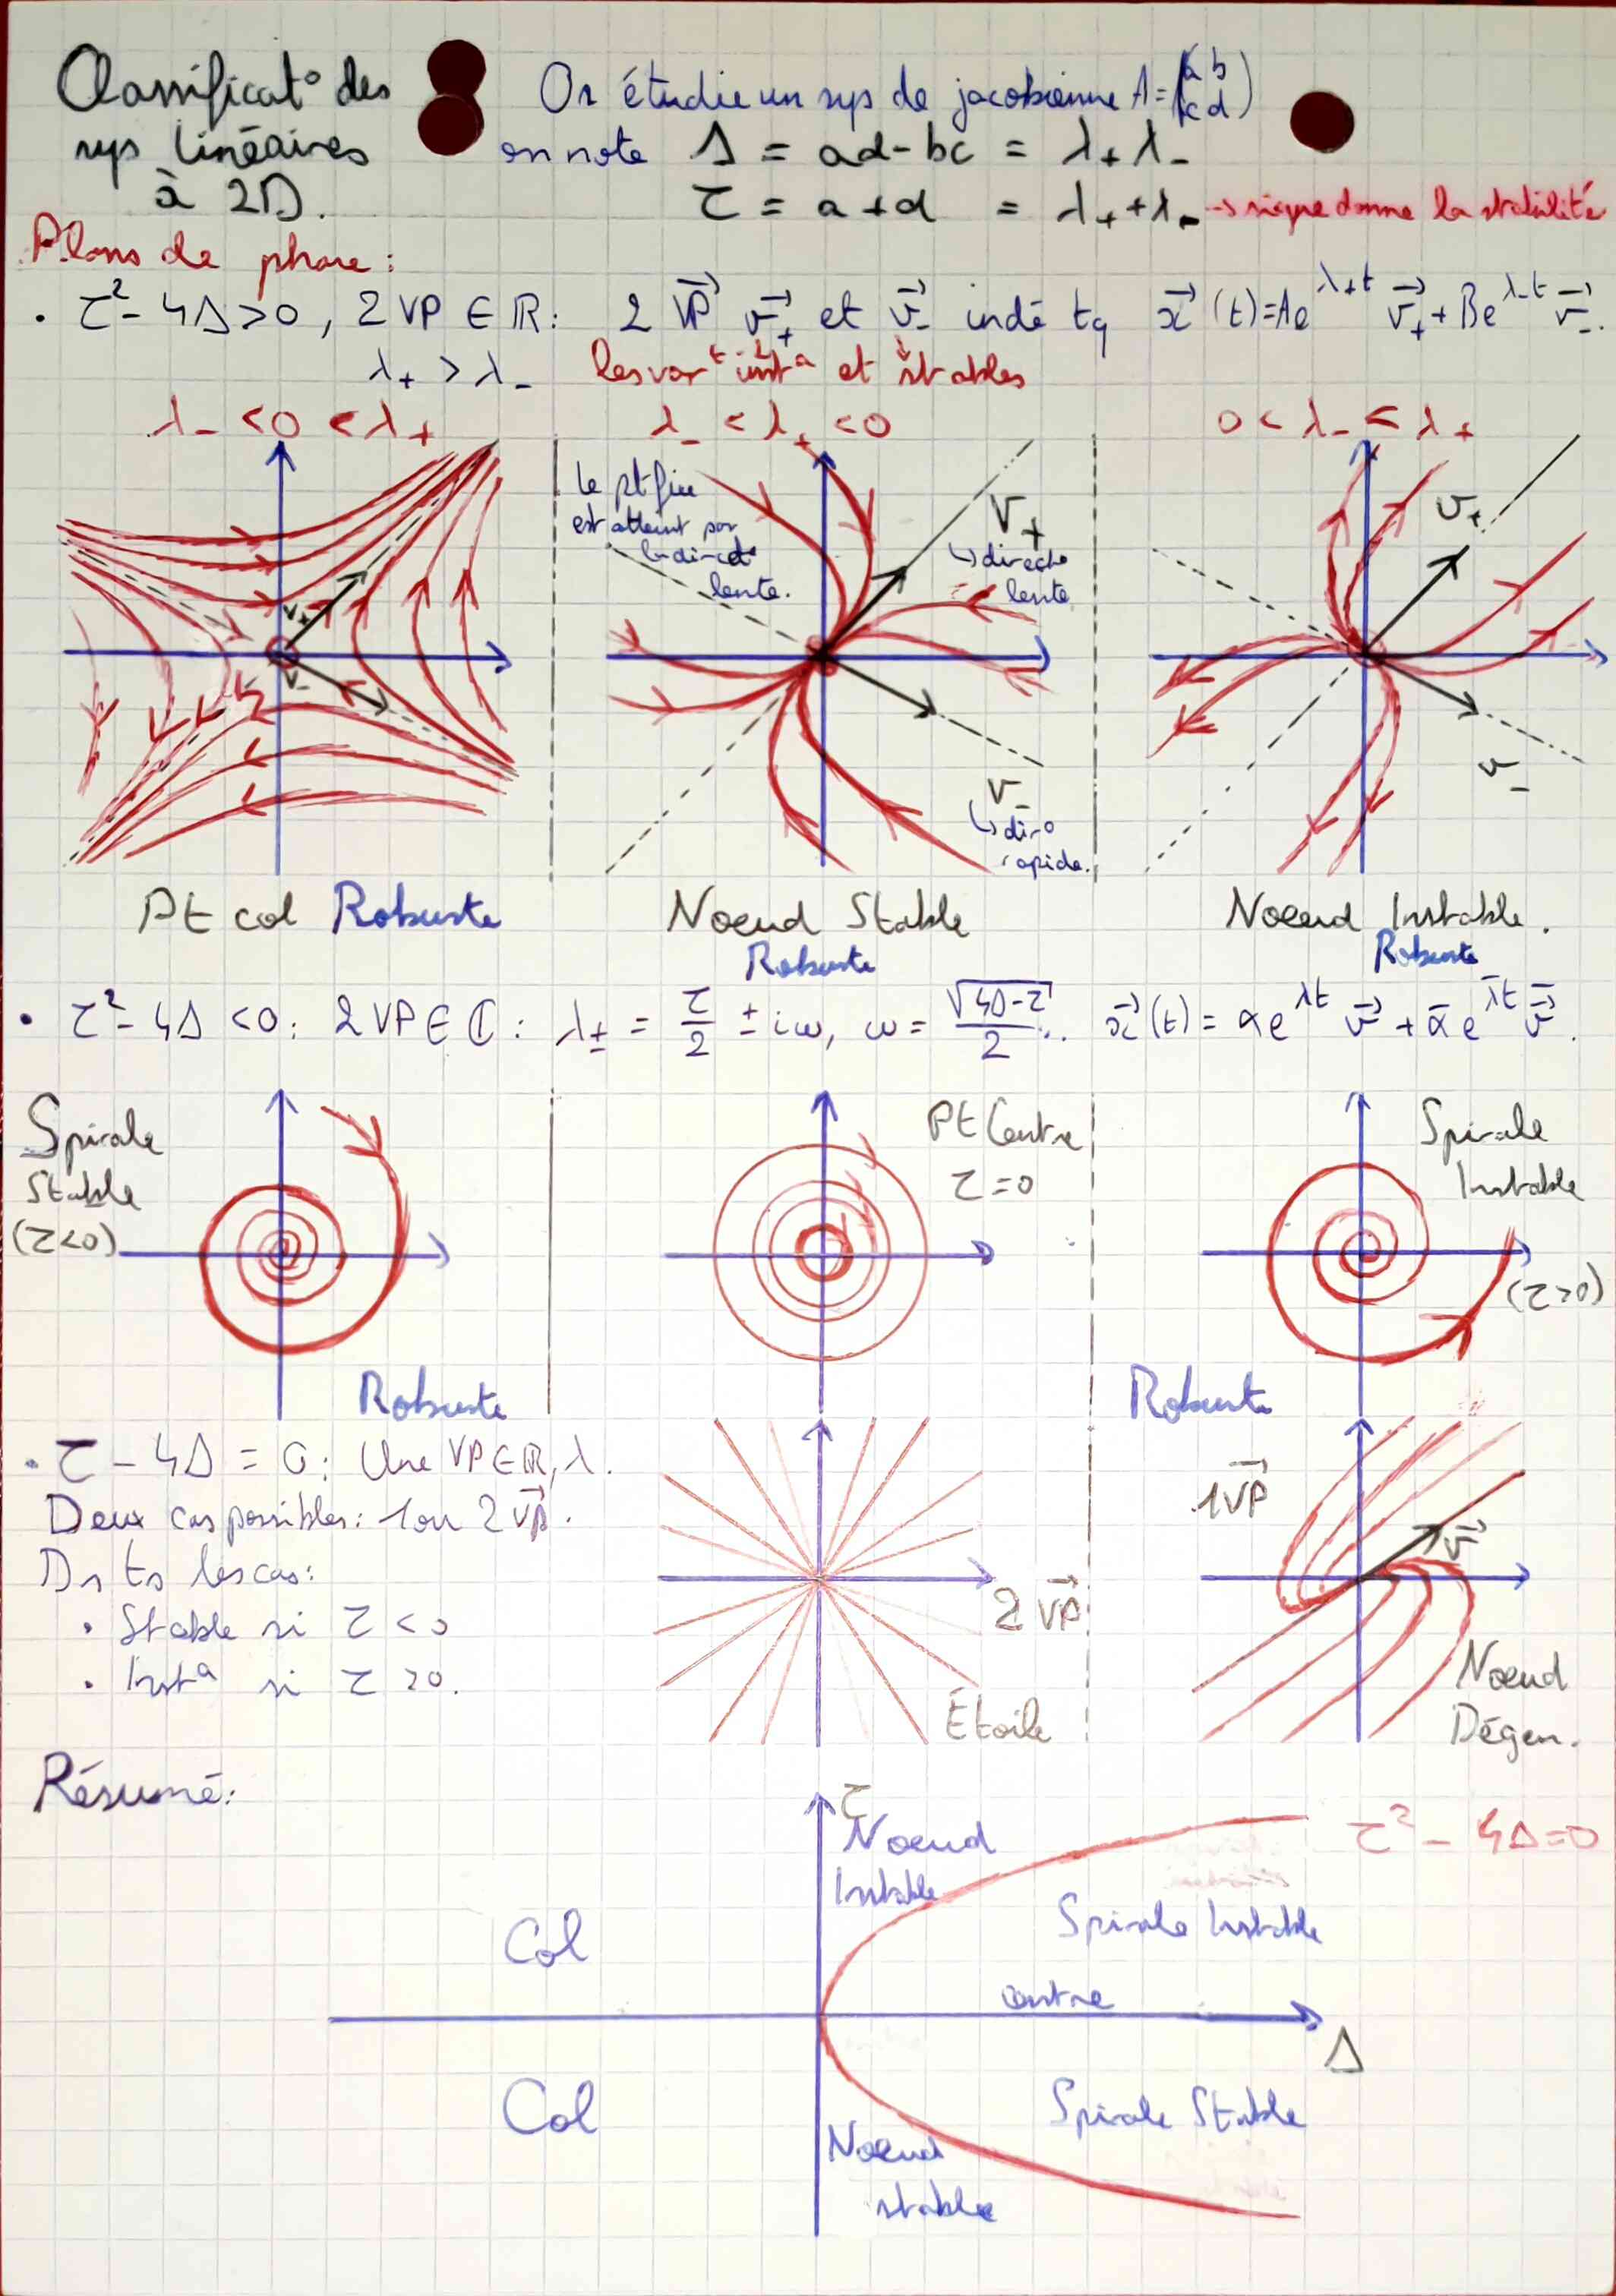 Classificat° des
sys linéaires
à 2D.
On étudie un sys de jacobienne A = (a b
c d)
on note Δ = ad-bc = λ+ λ-
τ = a+d = λ+ + λ- → signe donne la stabilité
Plans de phase :
• τ² - 4Δ > 0, 2 VP ∈ ℝ : 2 VP⃗ v⃗+ et v⃗- indé tq x⃗(t) = A e^λ+t v⃗+ + B e^λ-t v⃗-.
λ+ > λ- les var^t inst^a et stables
λ- < 0 < λ+
λ- < λ+ < 0
0 < λ- ≤ λ+
v+
v-
Le pt fixe
est atteint par
la direct°
lente.
V+
↳ direct°
lente
V-
↳ dir°
rapide.
v+
v-
Pt col Robuste
Noeud Stable
Robuste
Noeud Instable.
Robuste
• τ² - 4Δ < 0 : 2 VP ∈ ℂ : λ± = τ/2 ± iω, ω = √(4Δ-τ)/2 . x⃗(t) = α e^λt v⃗ + ᾱ e^λ̄t v⃗̄.
Spirale
Stable
(τ<0)
Robuste
Pt Centre
τ = 0
Spirale
Instable
(τ>0)
Robuste
• τ - 4Δ = 0 : Une VP ∈ ℝ, λ.
Deux cas possibles : 1 ou 2 vp⃗.
Ds ts les cas :
• Stable si τ < 0
• Inst^a si τ > 0.
2 VP⃗
Étoile
1 VP⃗
v⃗
Noeud
Dégen.
Résumé :
τ
Noeud
Instable
τ² - 4Δ = 0
Spirale Instable
Col
centre
Δ
Col
Spirale Stable
Noeud
stable